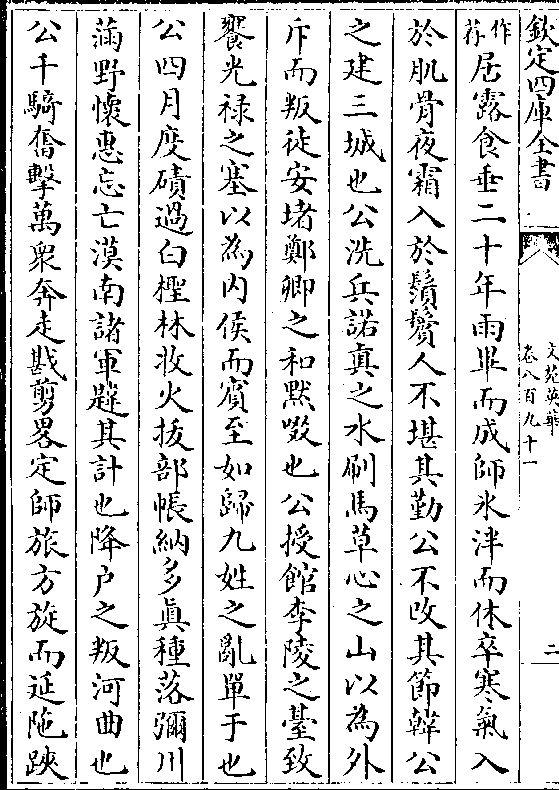 欽定四庫全書
文苑英華
卷八百九十一
二
作荐居露食垂二十年雨畢而成師氷泮而休卒寒氣入
於肌骨夜霜入於鬚鬢人不堪其勤公不攺其節韓公
之建三城也公洗兵諾真之水刷馬草心之山以為外
斥而叛徒安堵鄭卿之和黙啜也公授館李陵之䑓致
饔光禄之塞以為内侯而賓至如歸九姓之亂單于也
公四月度磧過白檉林收火拔部帳納多真種落彌川
滿野懷惠忘亡漠南諸軍韙其計也降户之叛河曲也
公千騎奮擊萬衆奔走戡剪畧定師旅方旋而延陁𨁂